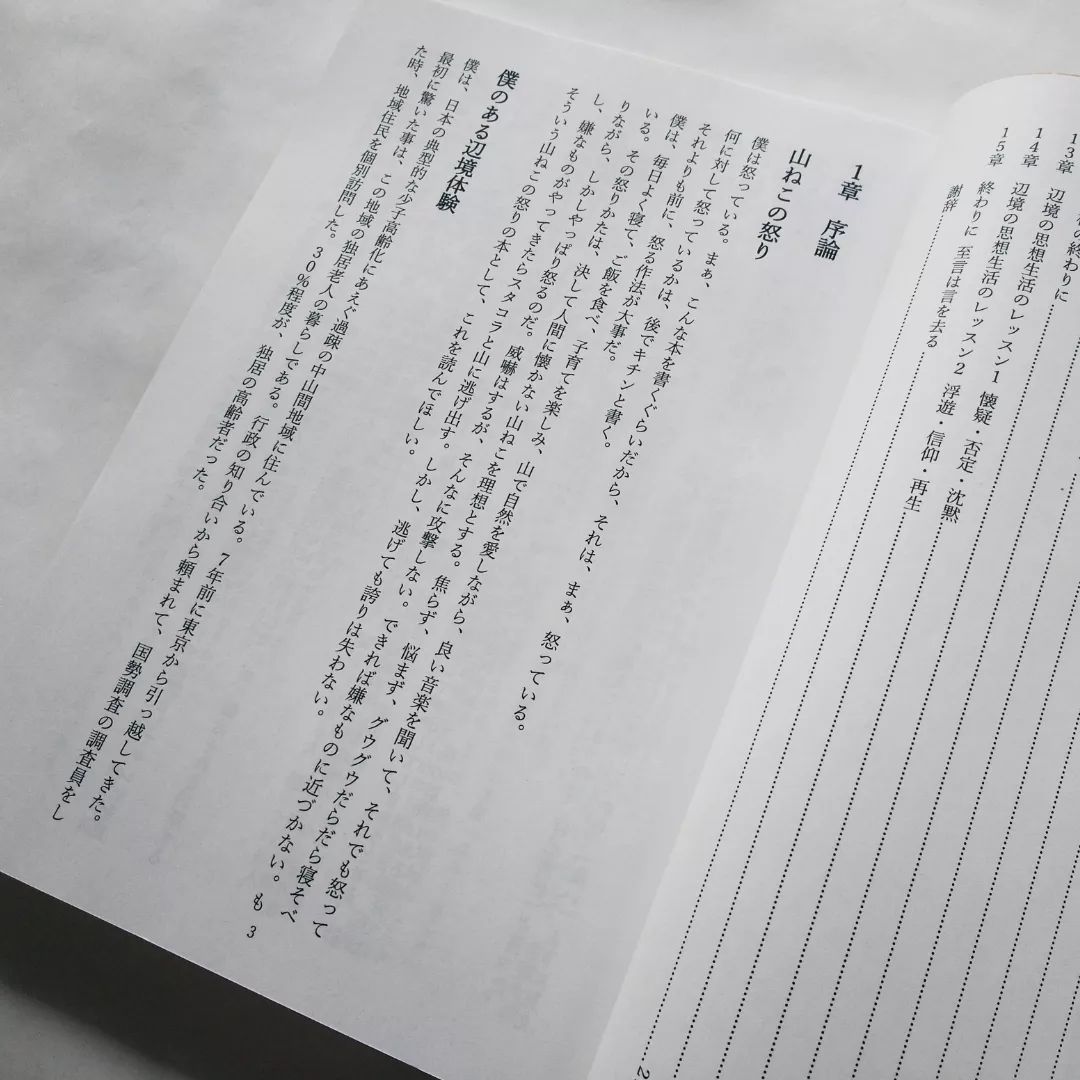 の終わりに
13章 辺境の思想生活のレッスン1 懐疑・否定・沈黙
14章 辺境の思想生活のレッスン2 浮遊・信仰・再生
15章 終わりに 至言は言を去る
謝辞
1章 序論
山ねこの怒り
僕は怒っている。まぁ、こんな本を書くぐらいだから、それは、まぁ、怒っている。
何に対して怒っているかは、後でキチンと書く。
それよりも前に、怒る作法が大事だ。
僕は、毎日よく寝て、ご飯を食べ、子育てを楽しみ、山で自然を愛しながら、良い音楽を聞いて、それでも怒って
いる。その怒りかたは、決して人間に懐かない山ねこを理想とする。焦らず、悩まず、グゥグゥだらだら寝そべ
りながら、しかしやっぱり怒るのだ。威嚇はするが、そんなに攻撃しない。できれば嫌なものに近づかない。も
し、嫌なものがやってきたらスタコラと山に逃げ出す。しかし、逃げても誇りは失わない。
そういう山ねこの怒りの本として、これを読んでほしい。
僕のある辺境体験
僕は、日本の典型的な少子高齢化にあえぐ過疎の中山間地域に住んでいる。7年前に東京から引っ越してきた。
最初に驚いた事は、この地域の独居老人の暮らしである。行政の知り合いから頼まれて、国勢調査の調査員をし
た時、地域住民を個別訪問した。30%程度が、独居の高齢者だった。
3